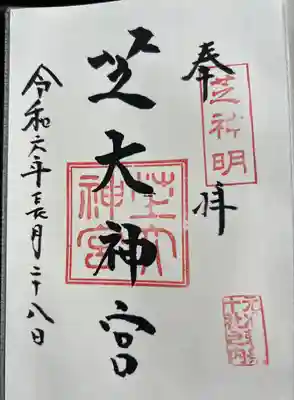 奉拝
芝神明
芝大神宮
芝大神宮
令和六年長月二十八日